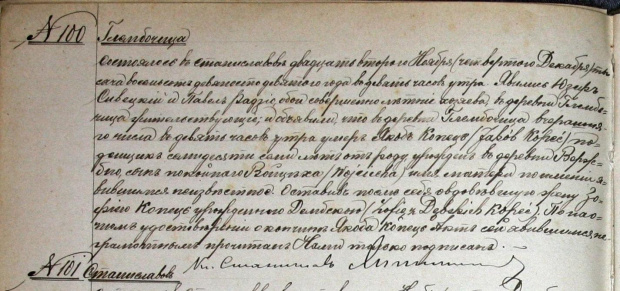 № 100 Глембочица
Состоялось въ Станиславовѣ двадцать второго Ноября /четвертого Декабря/ тыся
сяча восемьсотъ девяносто девятого года въ девять часовъ утра. Явились Юзефъ
Сивецкій и Павелъ Радзіо, обои совершеннолѣтніе хозяева, въ деревни Глембо-
чица жительствующіе; и объявили, что въ деревни Глембочица вчерашня-
го числа въ девять часовъ утра умеръ Якобъ Копець /Jakób Kopeć/ по-
денщикъ семдесяти семи лѣтъ отъ роду, урожденъ въ деревни
сынъ покойнаго /Wojciecha/ имя матери по мнѣнію я-
вившихся неизвѣстное. Оставивъ послѣ себя овдовѣвшую жену Зо-
фію Копець урожденную Дембскою /Zofię z Dębskich Kopeć/. По нао-
чномъ удостовѣреніи о кончинѣ Якоба Копець Актъ сей явившимся не-
грамотнымъ прочитанъ Нами только подписанъ.
Кс. Станиславъ
№ 101 Станиславовъ